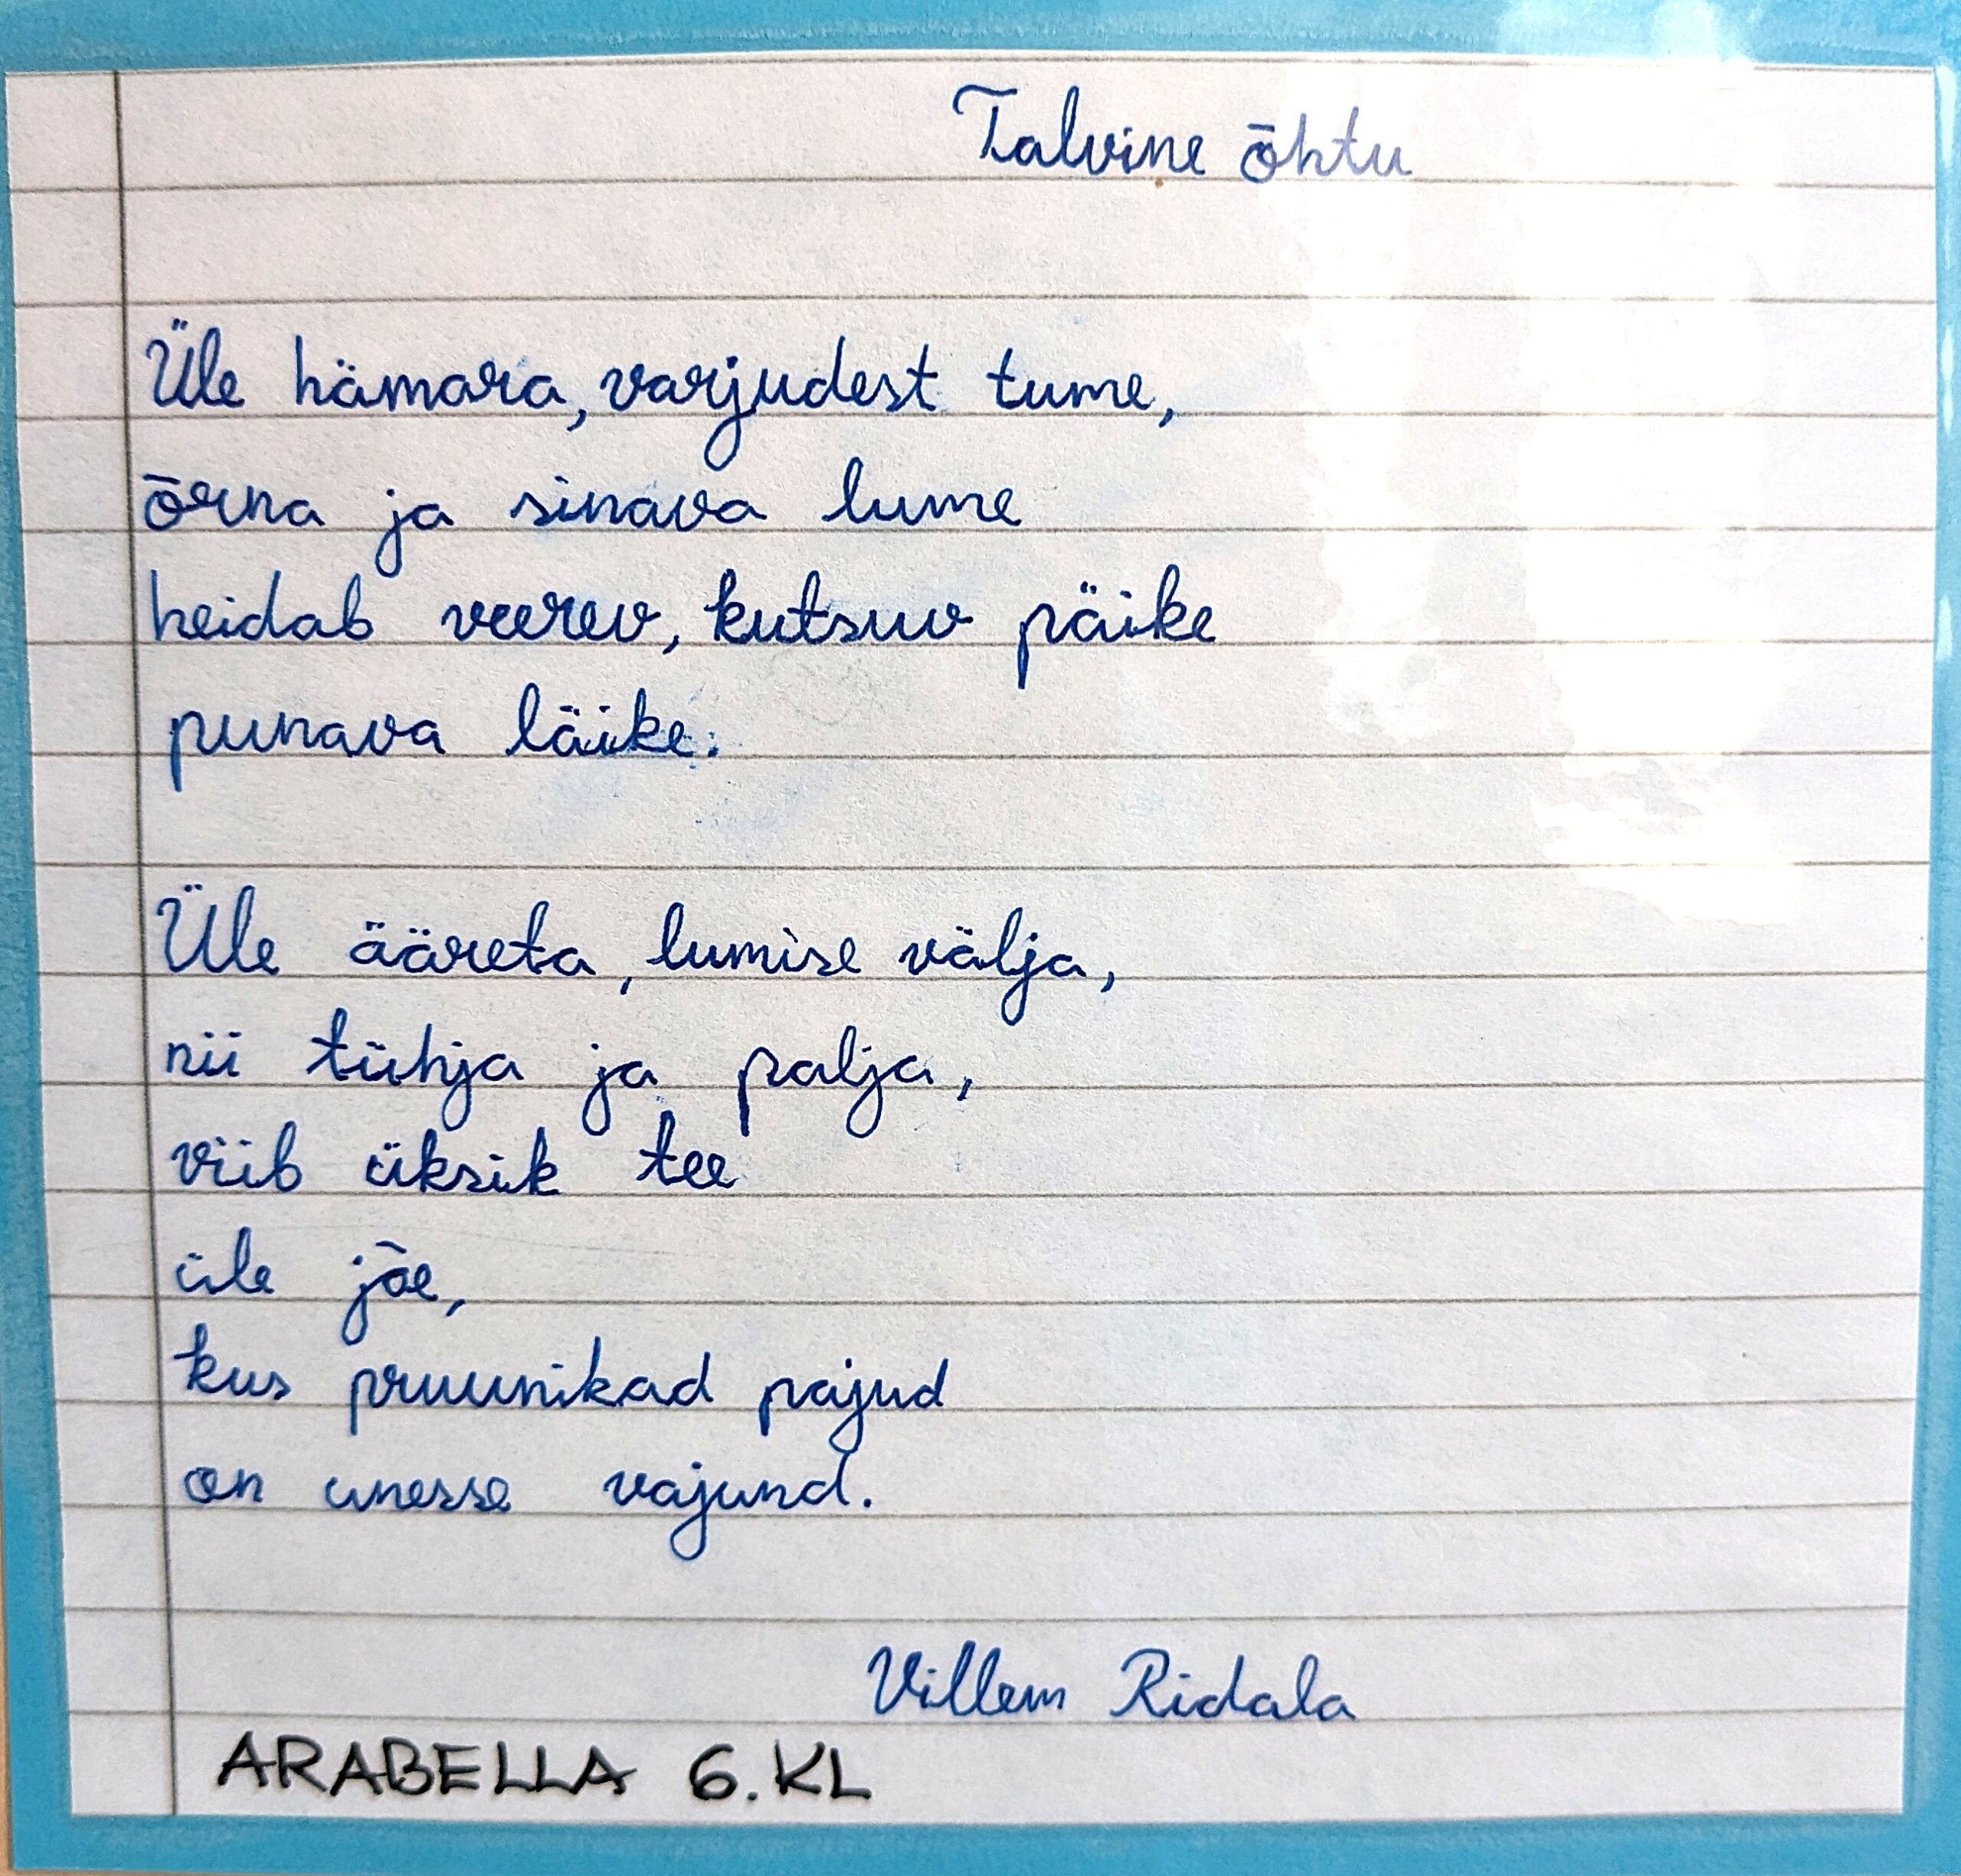 Talvine õhtu
Üle hämara, varjudest tume,
õrna ja sinava lume
heidab veerev, kutsuv päike
punava läike.
Üle ääreta, lumise välja,
nii tühja ja palja,
viib üksik tee
üle jõe,
kus pruunikad pajud
on unesse vajund.
Villem Ridala
ARABELLA 6. KL